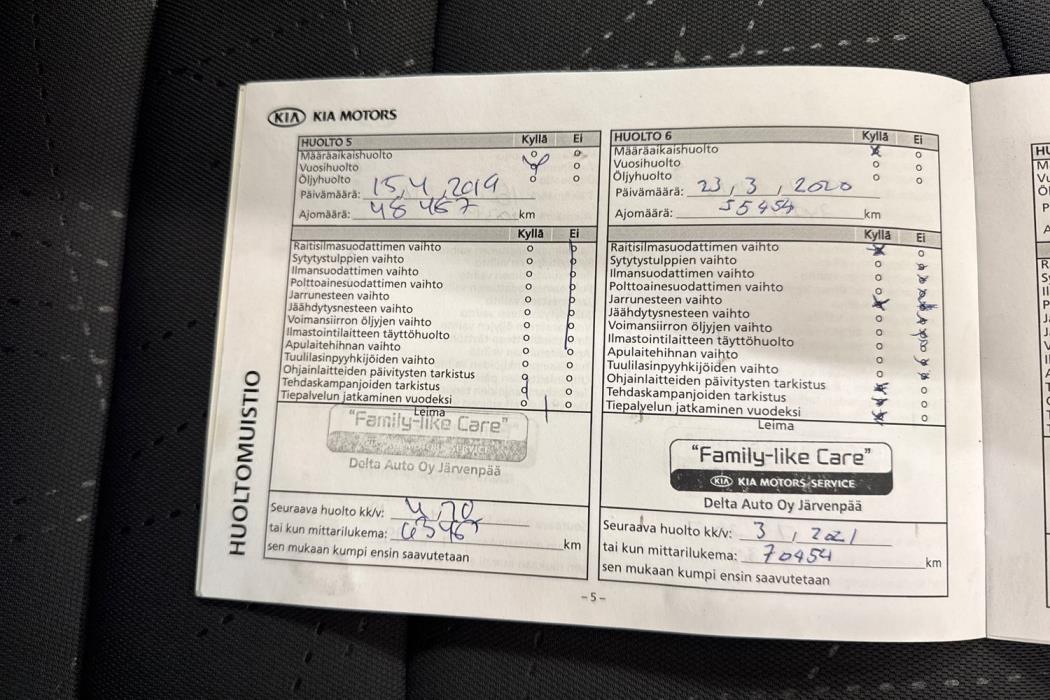 KIA KIA MOTORS
HUOLTO 5 Kyllä Ei
Määräaikaishuolto
Vuosihuolto
Öljyhuolto
Päivämäärä: 15,4,2019
Ajomäärä: 48 467 km
Kyllä Ei
Raitisilmasuodattimen vaihto
Sytytystulppien vaihto
Ilmansuodattimen vaihto
Polttoainesuodattimen vaihto
Jarrunesteen vaihto
Jäähdytysnesteen vaihto
Voimansiirron öljyjen vaihto
Ilmastointilaitteen täyttöhuolto
Apulaitehihnan vaihto
Tuulilasinpyyhkijöiden vaihto
Ohjainlaitteiden päivitysten tarkistus
Tehdaskampanjoiden tarkistus
Tiepalvelun jatkaminen vuodeksi
Leima
"Family-like Care"
KIA MOTORS SERVICE
Delta Auto Oy Järvenpää
Seuraava huolto kk/v: 4,20
tai kun mittarilukema: 63467 km
sen mukaan kumpi ensin saavutetaan
HUOLTO 6 Kyllä Ei
Määräaikaishuolto
Vuosihuolto
Öljyhuolto
Päivämäärä: 23,3,2020
Ajomäärä: 55454 km
Kyllä Ei
Raitisilmasuodattimen vaihto
Sytytystulppien vaihto
Ilmansuodattimen vaihto
Polttoainesuodattimen vaihto
Jarrunesteen vaihto
Jäähdytysnesteen vaihto
Voimansiirron öljyjen vaihto
Ilmastointilaitteen täyttöhuolto
Apulaitehihnan vaihto
Tuulilasinpyyhkijöiden vaihto
Ohjainlaitteiden päivitysten tarkistus
Tehdaskampanjoiden tarkistus
Tiepalvelun jatkaminen vuodeksi
Leima
"Family-like Care"
KIA KIA MOTORS SERVICE
Delta Auto Oy Järvenpää
Seuraava huolto kk/v: 3, 2021
tai kun mittarilukema: 70454 km
sen mukaan kumpi ensin saavutetaan
HUOLTOMUISTIO
- 5 -